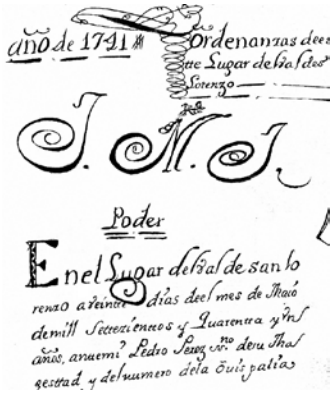 año de 1741 Ordenanzas de es
tte Lugar del Val de sn
Lorenzo
J. M. J.
Poder
En el Lugar del Val de san lo
renzo a veinte días deel mes de Maio
de mill Settezienttos y Quarentta y Vn
años, antemi Pedro Perez essno de su Mas
gesttad y del numero dela